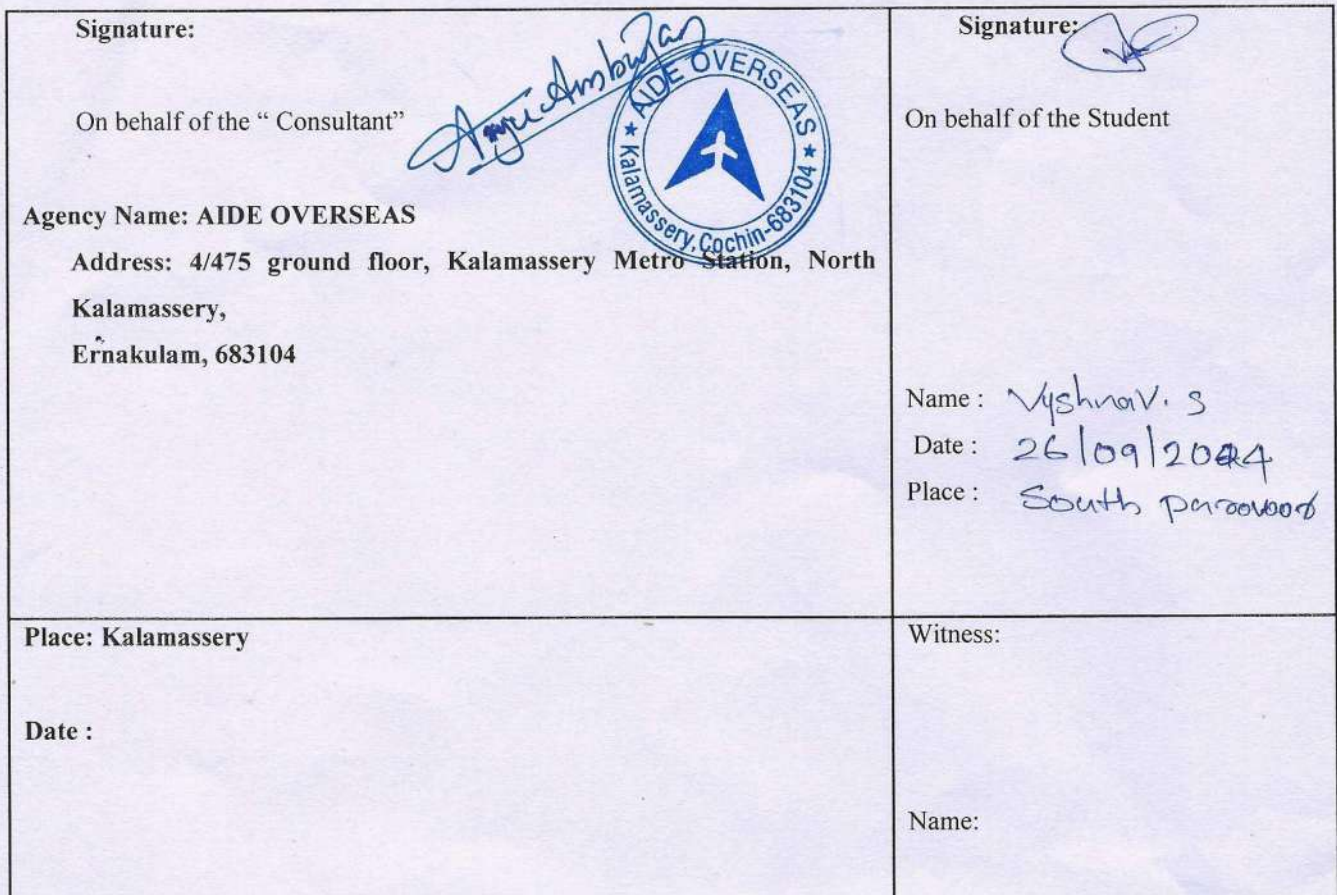 Signature:
On behalf of the “ Consultant”
AIDE OVERSEAS
★ Kalamassery, Cochin-683104 ★
Agency Name: AIDE OVERSEAS
Address: 4/475 ground floor, Kalamassery Metro Station, North
Kalamassery,
Ernakulam, 683104
Signature:
On behalf of the Student
Name : Vyshnav. S
Date : 26/09/2024
Place : South paravoor
Place: Kalamassery
Date :
Witness:
Name: